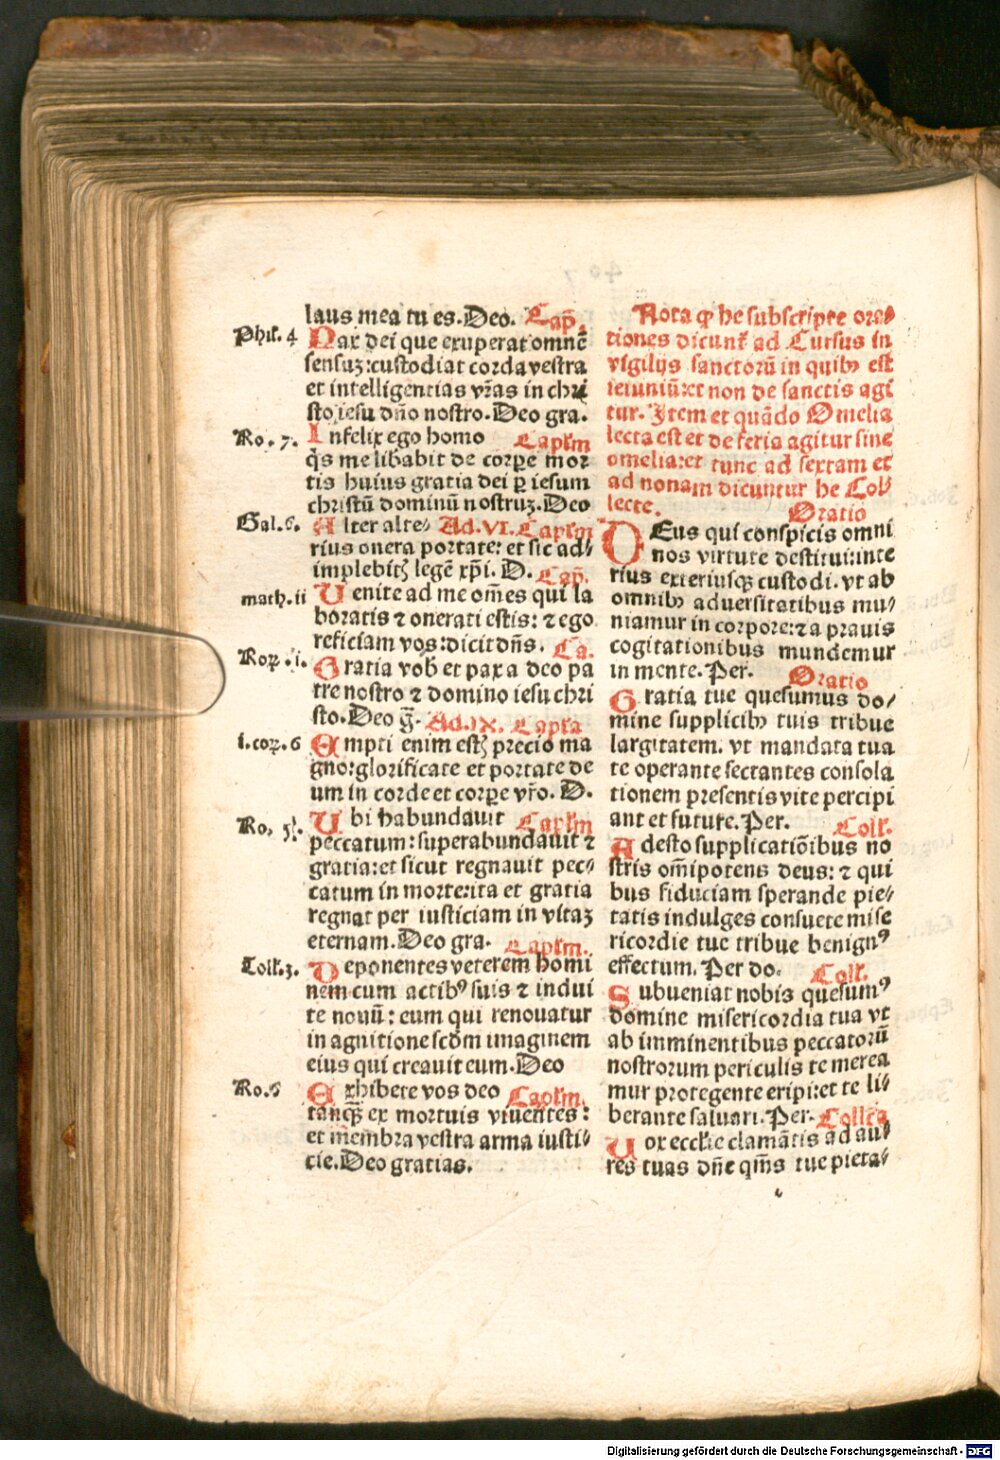 laus mea tu es. Deo. Cap̃.
Phil. 4 Pax dei que exuperat omnē
sensuꝫ: custodiat corda vestra
et intelligentias vr̃as in chri
sto iesu dño nostro. Deo gra.
Ro. 7. Infelix ego homo Caplm
q̃s me libabit de corpe mor
tis huius gratia dei ꝑ iesum
christū dominū nostruꝫ. Deo
Gal. 6. Alter alte⸗ Ad. VI. Caplm
rius onera portate: et sic ad⸗
implebitꝭ legē xp̃i. D. Cap̃.
math. ii Uenite ad me om̃es qui la
boratis ⁊ onerati estis: ⁊ ego
reficiam vos: dicit dñs. Ca.
Roꝝ. i. Gratia vob et pax a deo pa
tre nostro ⁊ domino iesu chri
sto. Deo g̃. Ad. IX. Capła
i. coꝝ. 6 Empti enim estꝭ precio ma
gno: glorificate et portate de
um in corde et corpe vr̃o. D.
Ro. 5. Ubi habundauit Caplm
peccatum: superabundauit ⁊
gratia: et sicut regnauit pec⸗
catum in morte: ita et gratia
regnat per iusticiam in vitaꝫ
eternam. Deo gra. Caplm.
Coll. 3. Deponentes veterem homi
nem cum actibꝰ suis ⁊ indui
te nouū: eum qui renouatur
in agnitione scdm imaginem
eius qui creauit eum. Deo
Ro. 6 Exhibete vos deo Caplm.
tanqꝫ ex mortuis viuentes:
et membra vestra arma iusti⸗
cie. Deo gratias.
Nota ꝙ he subscripte ora⸗
tiones dicunt̃ ad Cursus in
vigilijs sanctorū in quibꝫ est
ieiuniū: et non de sanctis agi
tur. Item et quādo Omelia
lecta est et de feria agitur sine
omelia: et tunc ad sextam et
ad nonam dicuntur he Col⸗
lecte. Oratio
DEus qui conspicis omni
nos virtute destitui: inte
rius exteriusqꝫ custodi. vt ab
omnibꝫ aduersitatibus mu⸗
niamur in corpore: ⁊ a prauis
cogitationibus mundemur
in mente. Per. Oratio
Gratia tue quesumus do⸗
mine supplicibꝫ tuis tribue
largitatem. vt mandata tua
te operante sectantes consola
tionem presentis vite percipi
ant et future. Per. Coll.
Adesto supplicatiōibus no
stris om̃ipotens deus: ⁊ qui
bus fiduciam sperande pie⸗
tatis indulges consuete mise
ricordie tue tribue benignꝰ
effectum. Per do. Coll.
Subueniat nobis quesumꝰ
domine misericordia tua vt
ab imminentibus peccatorū
nostrorum periculis te merea
mur protegente eripi: et te li⸗
berante saluari. Per. Collcā
Uox ecclie clamātis ad au⸗
res tuas dñe qm̃s tue pieta⸗
Digitalisierung gefördert durch die Deutsche Forschungsgemeinschaft - DFG